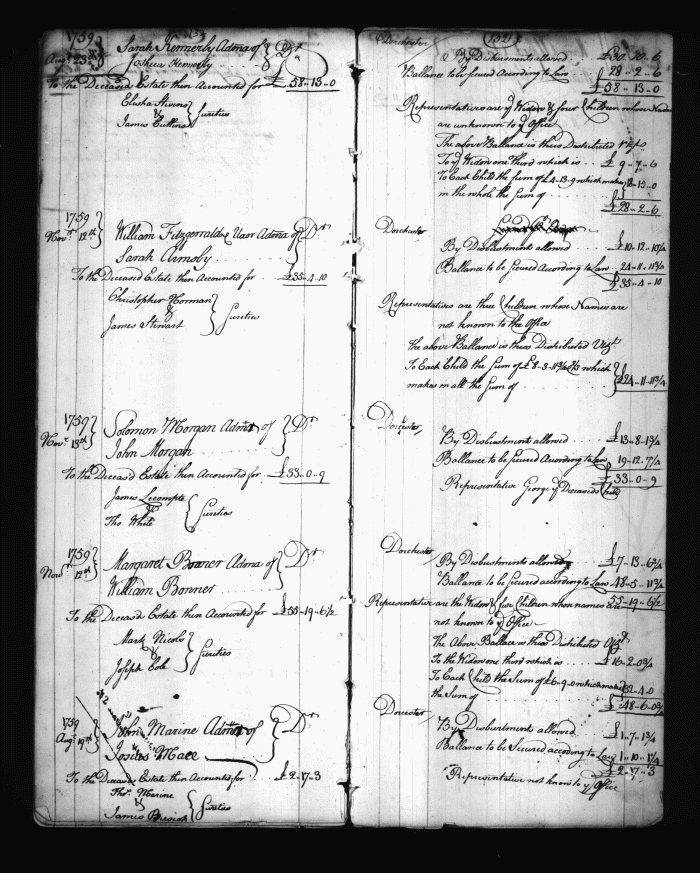 1759
Augt 23d
Sarah Kennerly Admx of Dr
Joshua Kennerly
To the Deceased Estate then Accounted for £58-13-0
Elisha
&
James
Sureties
1759
Novr 12th
William Fitzgerrald & Uxor Admx of Dr
Sarah Ornsby
To the Deceased Estate then Accounted for £35-4-10
Christopher Norman
&
James Stewart
Sureties
1759
Novr 13th
Solomon Morgan Admr of Dr
John Morgan
To the Deceased Estate then Accounted for £33-0-9
James Lecompte
&
Tho White
Sureties
1759
Novr 12th
Margaret Bonner Admx of Dr
William Bonner
To the Deceased Estate then Accounted for £55-19-6½
Mark Nicols
&
Joseph Cole
Sureties
1759
Augt 19th
John Marine Admr of Dr
Josias Mace
To the Deceased Estate then Accounted for £2-17-3
Thos Marine
&
James
Sureties
Dorchester (132)
By Disbursments allowed £30-10-6
Ballance to be secured According to Law 28-2-6
£58-13-0
Representatives are ye Widow & four Children whose Names
are unknown to ye Office
The above Ballance is thus Distributed
To ye Widow one Third which is £9-7-6
To Each Child the Sum of £4-13-9 which makes
in the whole the Sum of 18-15-0
£28-2-6
Dorchester
By Disbustments allowed £10-12-10¾
Ballance to be secured According to Law 24-11-11¼
£35-4-10
Representatives are three Children whose Names are
not known to the Office
The above Ballance is thus Distributed Vizt
To Each Child the Sum of £8-3-11¾ which
makes in all the Sum of £24-11-11¼
Dorchester
By Disbustments allowed £13-8-1¾
Ballance to be secured According to Law 19-12-7¼
£33-0-9
Representative George ye Deceaseds Child
Dorchester
By Disbustments allowed £7-13-6¾
Ballance to be secured according to Law 48-5-11¾
55-19-6½
Representative are the Widow & five Children whose names are
not known to ye Office
The Above Ballace is thus Distributed Vizt
To the Widow one third which is £16-2-0¾
To Each Child the Sum of £6-9-0 which makes
the Sum of 32-4-0
£48-6-0¾
Dorchester
By Disburtments allowed £1-7-1¾
Ballance to be Secured according to Law 1-10-1¼
£2-17-3
Representative not know to ye Office